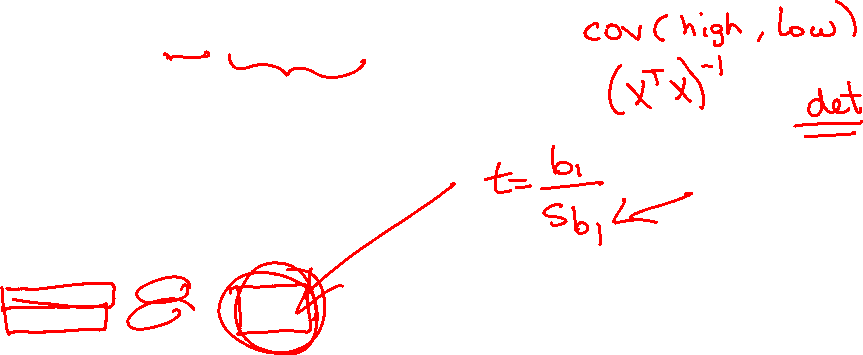 cov(high, low)
(XᵀX)⁻¹
det
t = b₁ / Sb₁